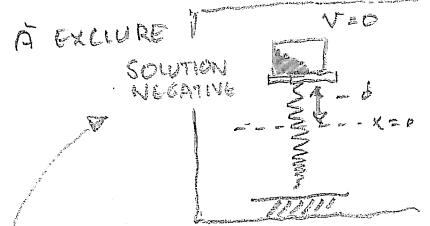 À EXCLURE
SOLUTION
NEGATIVE
V=0
-d
x=0